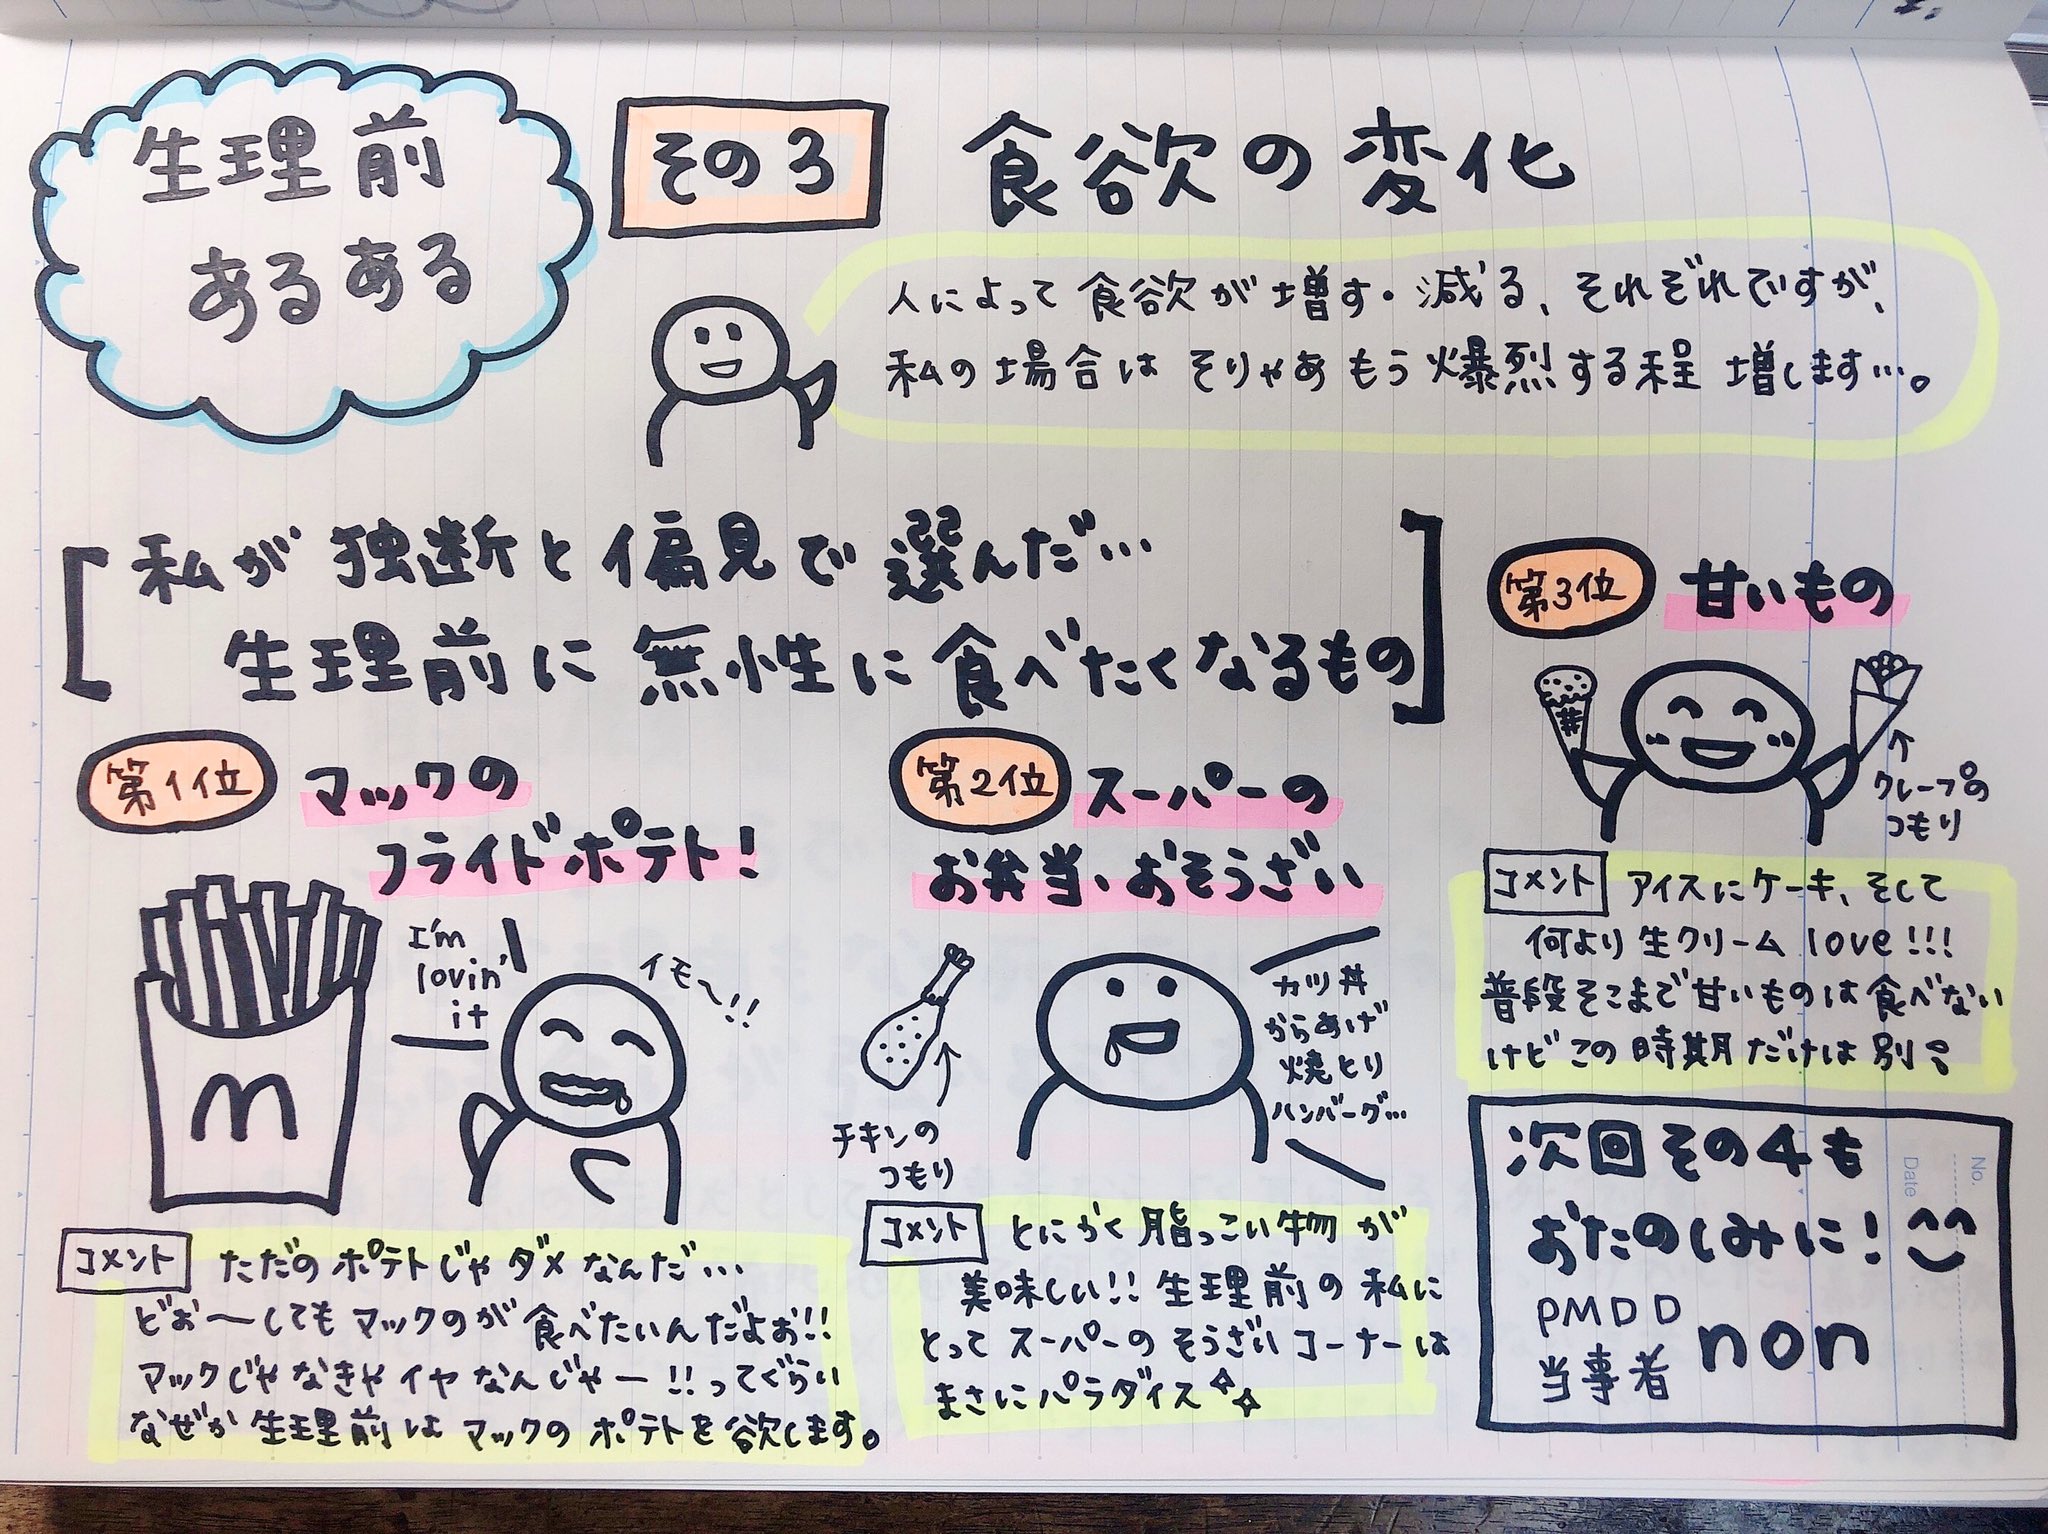 生理前
あるある
その3
食欲の変化
人によって食欲が増す・減る、それぞれですが、
私の場合はそりゃあもう爆烈する程増します…。
私が独断と偏見で選んだ…
生理前に無性に食べたくなるもの
第1位
マックの
フライドポテト!
I'm
lovin'
it
イモ〜!!
コメント
ただのポテトじゃダメなんだ…
どぉ〜してもマックのが食べたいんだよぉ!!
マックじゃなきゃイヤなんじゃー!!ってぐらい
なぜか生理前はマックのポテトを欲します。
第2位
スーパーの
お弁当、おそうざい
チキンの
つもり
カツ丼
からあげ
焼とり
ハンバーグ…
コメント
とにかく脂っこい物が
美味しい!!生理前の私に
とってスーパーのそうざいコーナーは
まさにパラダイス
第3位
甘いもの
クレープの
つもり
コメント
アイスにケーキ、そして
何より生クリームlove!!!
普段そこまで甘いものは食べない
けどこの時期だけは別。
次回その4も
おたのしみに!
PMDD
当事者
non
No.
Date